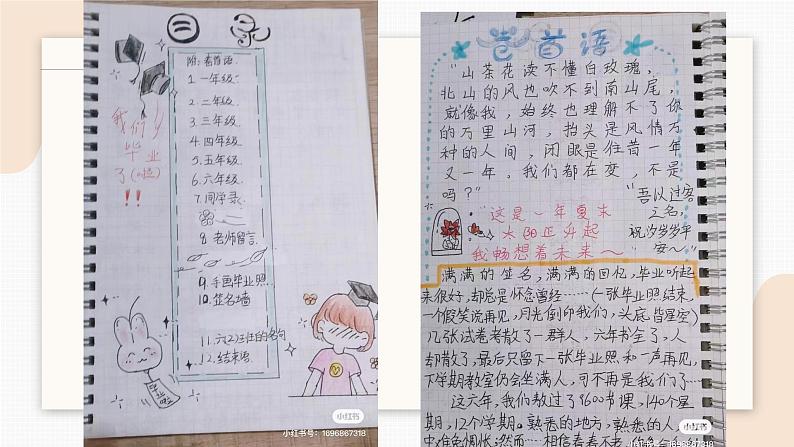 目录
附:卷首语
1 一年级
2. 二年级
3. 三年级
4. 四年级
5. 五年级
6. 六年级
7. 同学录
8. 老师留言
9. 手画毕业照
10. 签名墙
11. 六(2)班的名句
12. 结束语
我们
毕业
了(啦)
!!
小红书
小红书号：1696867318
卷首语
“山茶花读不懂白玫瑰，
北山的风也吹不到南山尾，
就像我，始终也理解不了你
的万里山河，抬头是风情万
种的人间，闭眼是往昔一年
又一年。我们都在变，不是
吗？”
“吾以过客
之名，
祝汐岁岁平
安～”
这是一年夏末
太阳正升起
我畅想着未来～
满满的签名，满满的回忆，毕业听起
来很好，却总是怀念曾经……(一张毕业照结束，
一个假笑说再见，月光倒印我们，头底皆星空)
几张试卷考散了一群人，六年书全了，人
却散了，最后只留下一张毕业照和一声再见，
下学期教室仍会坐满人，可不再是我们了…
这六年，我们教过了8600节课，140个星
期，12个学期。熟悉的地方，熟悉的人，
中难免惆怅；然而…相信看着不
小红书
小红书号：1696867318